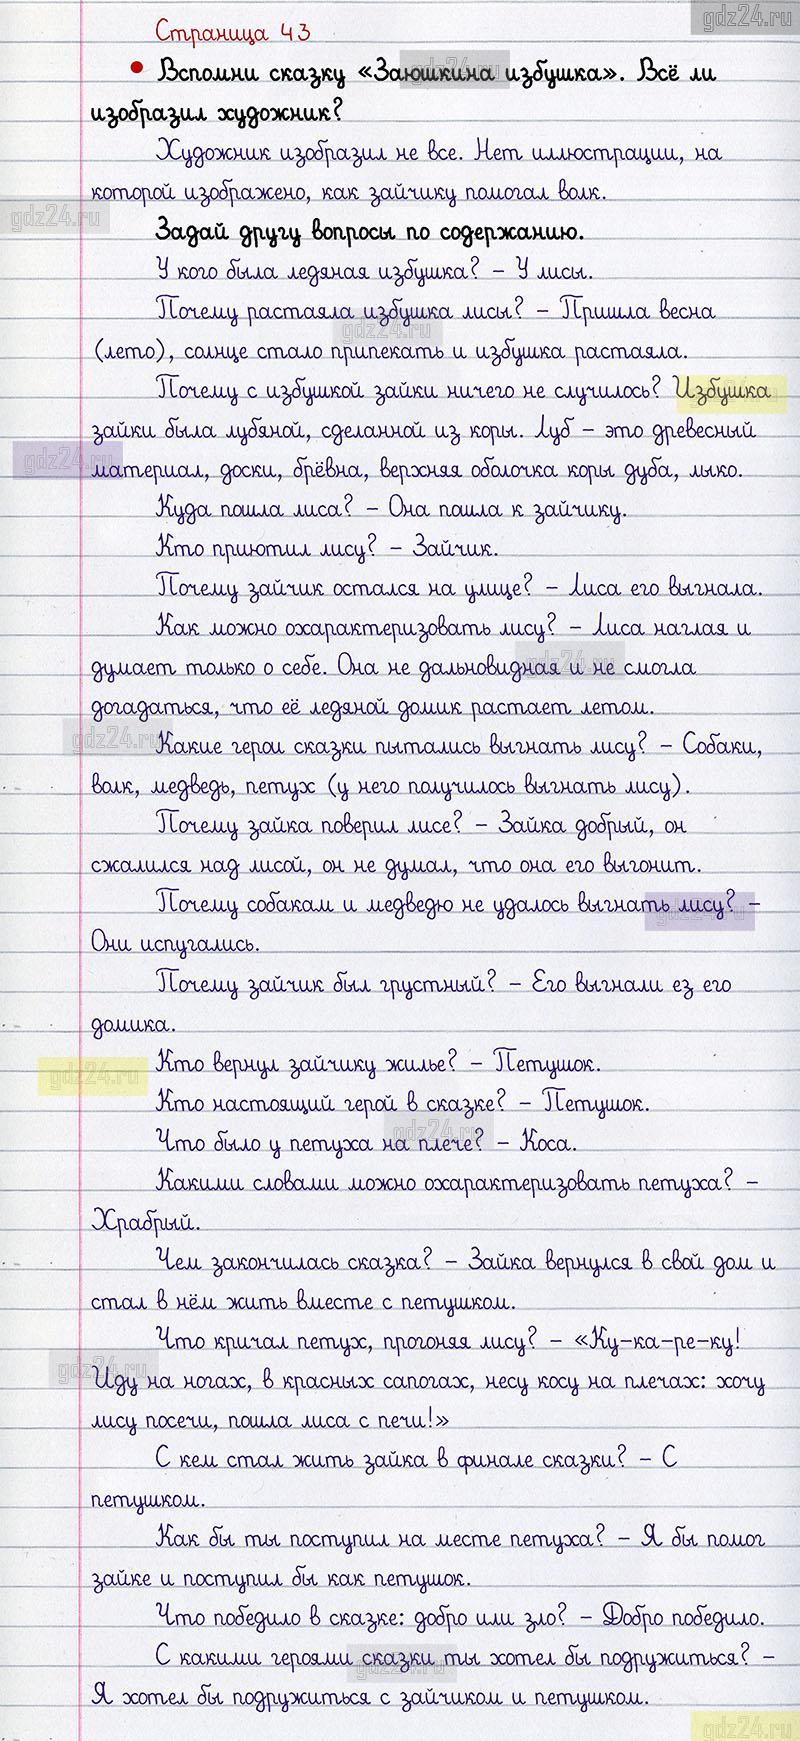 gdz24.ru
Страница 43
• Вспомни сказку «Заюшкина избушка». Всё ли
gdz24.ru
изобразил художник?
Художник изобразил не все. Нет иллюстрации, на
которой изображено, как зайчику помогал волк.
gdz24.ru
Задай другу вопросы по содержанию.
У кого была ледяная избушка? – У лисы.
Почему растаяла избушка лисы? – Пришла весна
gdz24.ru
(лето), солнце стало припекать и избушка растаяла.
Почему с избушкой зайки ничего не случилось? Избушка
gdz24.ru
зайки была лубяной, сделанной из коры. Луб – это древесный
gdz24.ru
материал, доски, брёвна, верхняя оболочка коры дуба, лыко.
Куда пошла лиса? – Она пошла к зайчику.
Кто приютил лису? – Зайчик.
Почему зайчик остался на улице? – Лиса его выгнала.
Как можно охарактеризовать лису? – Лиса наглая и
думает только о себе. Она не дальновидная и не смогла
gdz24.ru
догадаться, что её ледяной домик растает летом.
gdz24.ru
Какие герои сказки пытались выгнать лису? – Собаки,
волк, медведь, петух (у него получилось выгнать лису).
Почему зайка поверил лисе? – Зайка добрый, он
сжалился над лисой, он не думал, что она его выгонит.
Почему собакам и медведю не удалось выгнать лису? –
gdz24.ru
Они испугались.
Почему зайчик был грустный? – Его выгнали ез его
домика.
Кто вернул зайчику жилье? – Петушок.
gdz24.ru
Кто настоящий герой в сказке? – Петушок.
gdz24.ru
Что было у петуха на плече? – Коса.
Какими словами можно охарактеризовать петуха? –
Храбрый.
Чем закончилась сказка? – Зайка вернулся в свой дом и
стал в нём жить вместе с петушком.
Что кричал петух, прогоняя лису? – «Ку-ка-ре-ку!
gdz24.ru
Иду на ногах, в красных сапогах, несу косу на плечах: хочу
лису посечи, пошла лиса с печи!»
С кем стал жить зайка в финале сказки? – С
петушком.
Как бы ты поступил на месте петуха? – Я бы помог
зайке и поступил бы как петушок.
Что победило в сказке: добро или зло? – Добро победило.
С какими героями сказки ты хотел бы подружиться? –
gdz24.ru
Я хотел бы подружиться с зайчиком и петушком.
gdz24.ru